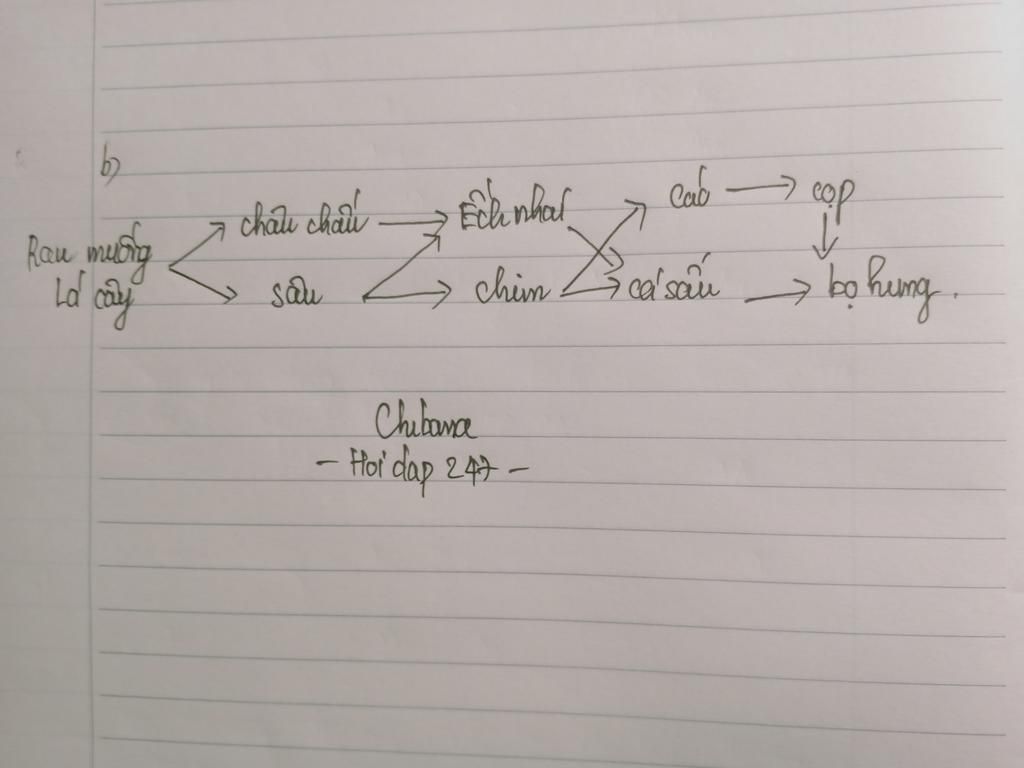 b)
Rau muống
Lá cây
châu chấu → Ếch nhái
cáo → cọp
sâu → chim → cá sấu → bọ hung.
Chibana
- Hoi dap 247 -